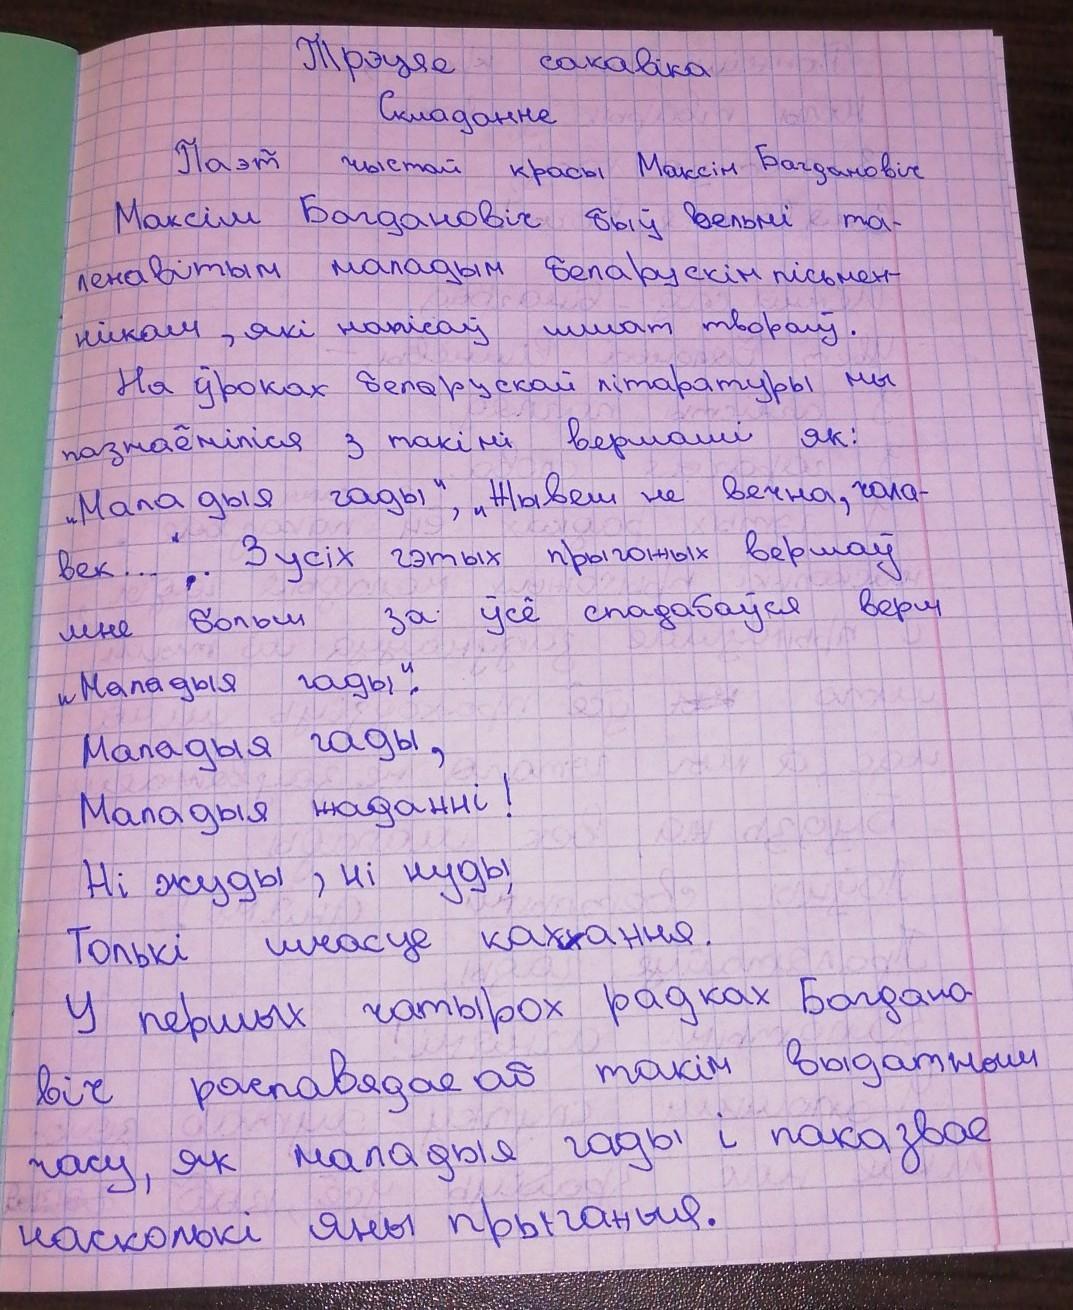 Трэцяе сакавіка
Складанне
Паэт чыстай красы Максім Багдановіч
Максім Богдановіч быў вельмі та-
ленавітым маладым беларускім пісьмен-
нікам, які напісаў шмат твораў.
На ўроках беларускай літаратуры мы
пазнаёміліся з такімі вершамі як:
„Маладыя гады", „Жывеш не вечна, чала-
век...". З усіх гэтых прыгожых вершаў
мне больш за ўсё спадабаўся верш
„Маладыя гады".
Маладыя гады,
Маладыя жаданні!
Ні жуды, ні нуды,
Толькі шчасце кахання.
У першых чатырох радках Богдано-
віч распавядае аб такім выдатным
часу, як маладыя гады і паказвае
наколькі яны прыганыя.